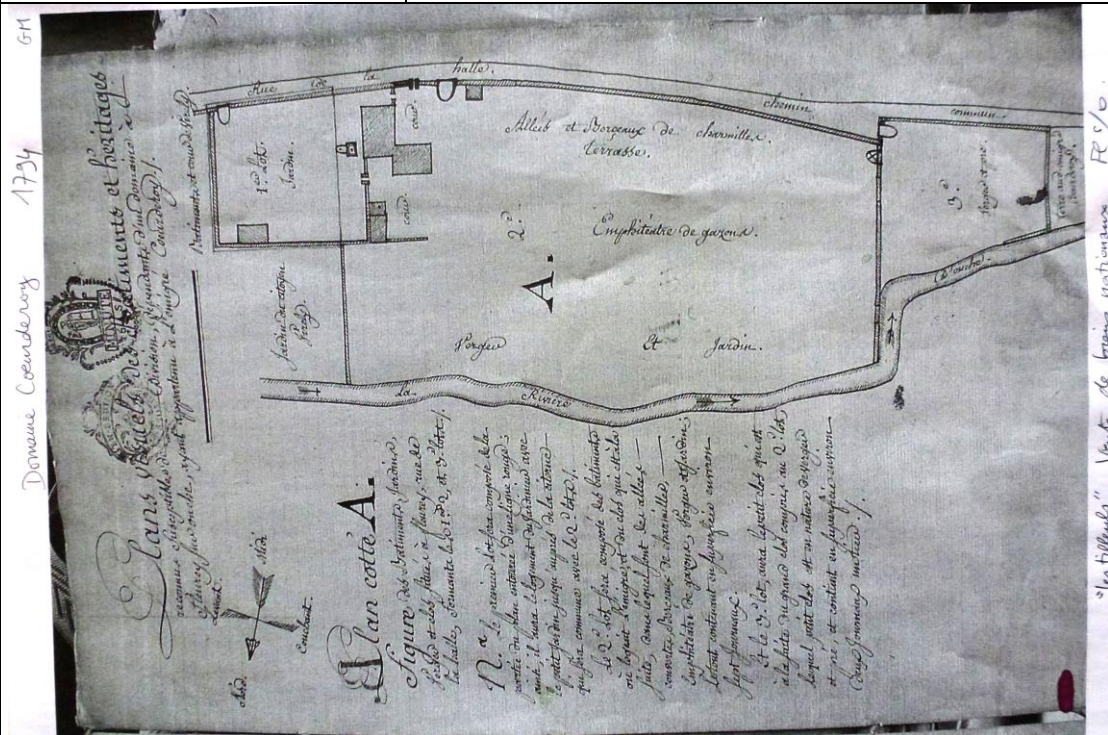 Domaine Coeurderoy 1794 GM
Plans Visuels des Batiments et héritages
reconnus susceptibles de Division, dépendants d'un domaine à
fleurey sur ouche, ayant appartenu à l'émigré Coeurderoy /.
MINUTE
Levant.
Nord.
Midi
Couchant.
Plan cotté A.
Figure des Batiments, Jardins,
Verger et clos situé à fleurey, rue de
la halle, formants les 1er 2e, et 3e lots /.
Na. Le premier lot sera composé de la
partie du plan entourée d'une ligne rouge;
ainsi, il aura le logement du Jardinier avec
le petit Jardin jusqu'auprès de la citerne
qui sera commune avec le 2e lot /.
Le 2e lot sera composé des batiments
où logeait l'émigré, et du clos qui est à la
suite, dans lequel sont des allées
couvertes, Berceaux de charmilles,
Emphitéatre de gazons, Verger et Jardin;
Le tout contenant en superficie environ
sept journaux.
Et le 3e lot, aura le petit clos qui est
à la suite du grand clos compris au 2e lot,
lequel petit clos est en nature de verger
et pré, et contient en superficie environ
Rue de la halle.
chemin commun
Batiments et cour de
1er Lot.
Jardin.
cour.
cour.
Jardin du citoyen
Allées et Berceaux de charmilles.
terrasse.
2e
Emphitéatre de gazons.
A.
Verger Et Jardin.
3e
Verger et pré.
La Rivière D'ouche
"Les tilleuls" Vente de biens nationaux